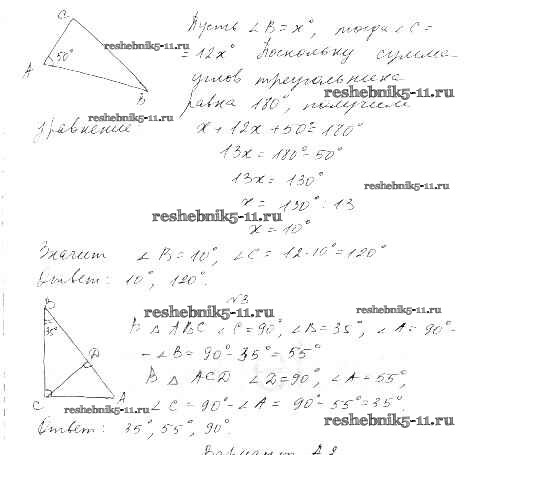 C Пусть ∠B = x°, тогда ∠C =
reshebnik5-11.ru
= 12x° Поскольку сумма
50°
A
углов треугольника
reshebnik5-11.ru
B
равна 180°, получим
reshebnik5-11.ru
уравнение x + 12x + 50° = 180°
13x = 180° - 50°
13x = 130°
reshebnik5-11.ru
x = 130° : 13
reshebnik5-11.ru
x = 10°
Значит ∠B = 10°, ∠C = 12·10° = 120°
Ответ: 10°, 120°.
№3
B
reshebnik5-11.ru
reshebnik5-11.ru
35° В △ABC ∠C = 90°, ∠B = 35°, ∠A = 90° -
- ∠B = 90° - 35° = 55°
D
В △ACD ∠D = 90°, ∠A = 55°,
C A
reshebnik5-11.ru
∠C = 90° - ∠A = 90° - 55° = 35°.
reshebnik5-11.ru
Ответ: 35°, 55°, 90°.
Вариант